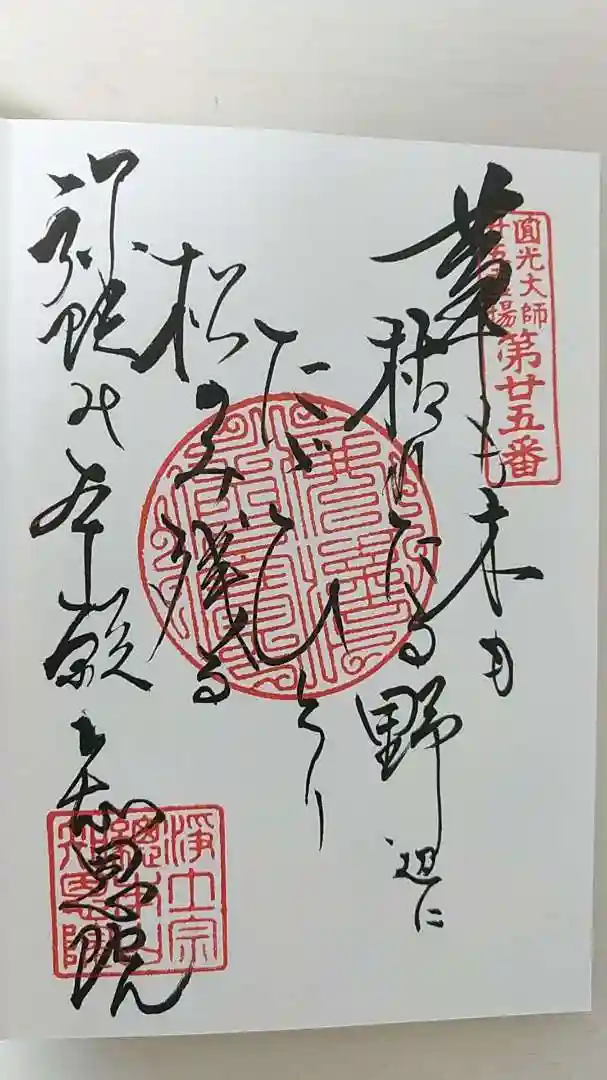 圓光大師
廿五霊場
第廿五番
草も木も
枯れたる野辺に
ただひとり
松のみ残る
弥陀の本願 知恩院
淨土宗
總本山
知恩院